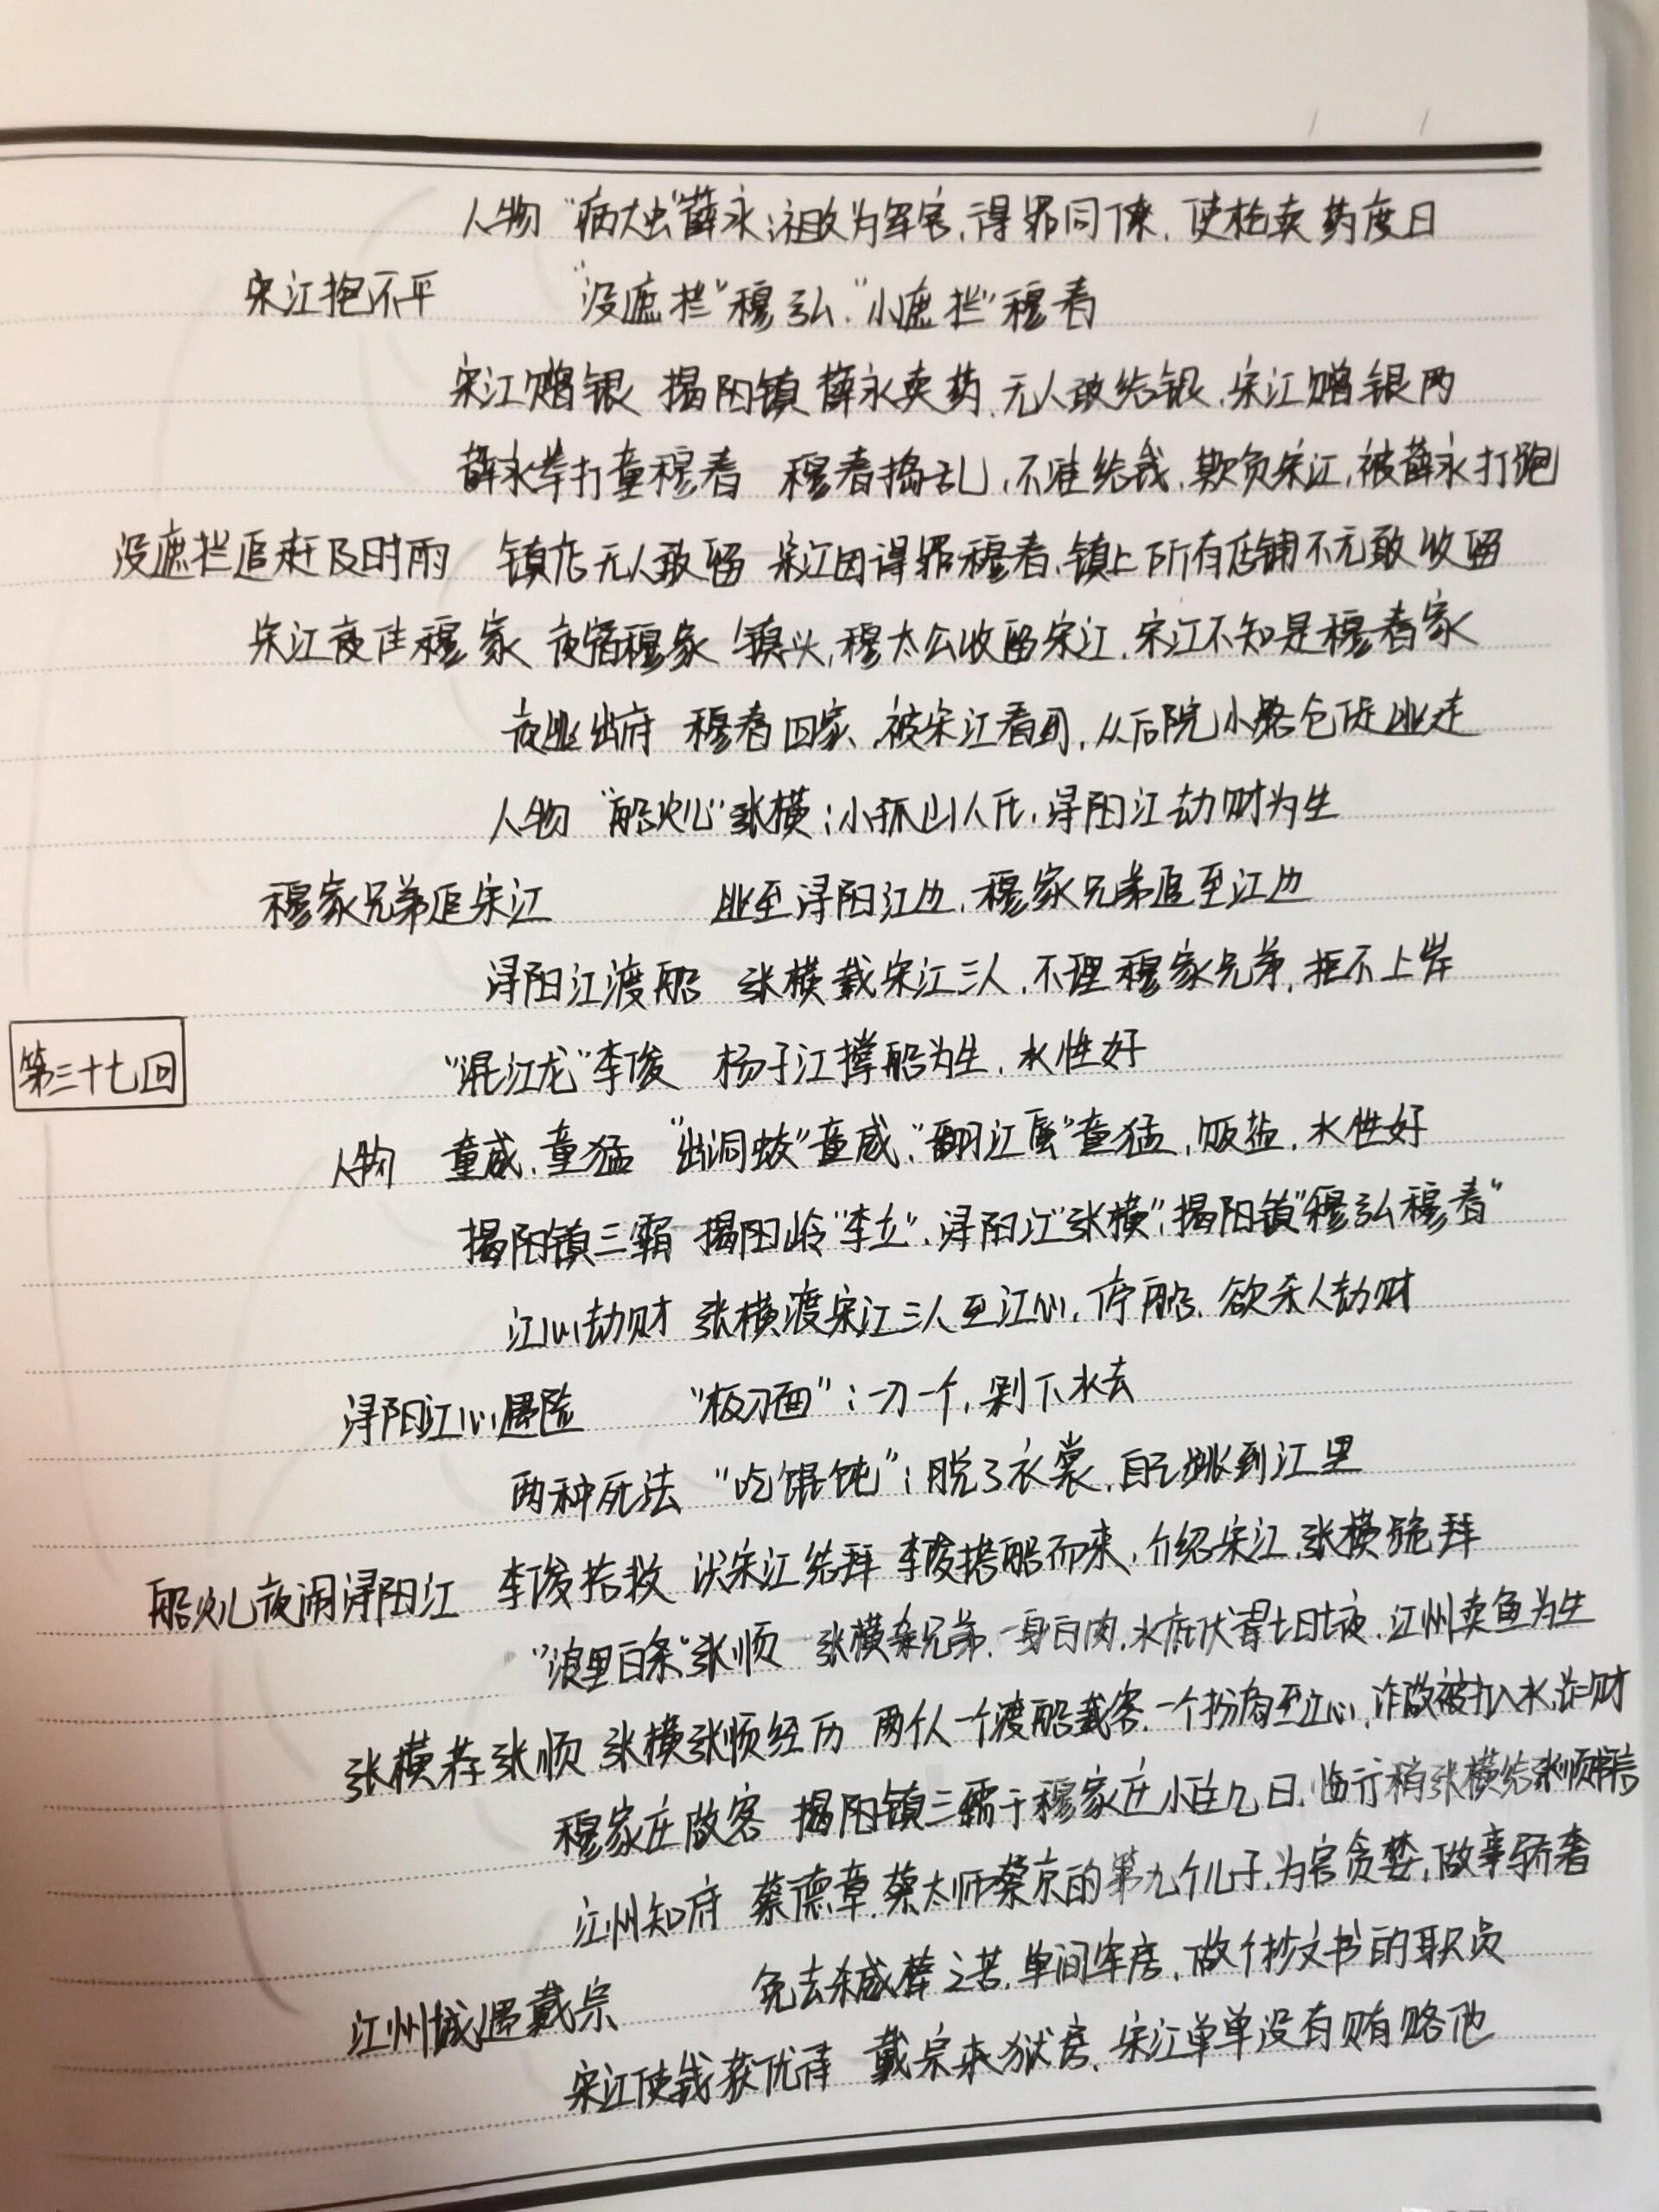 人物 “病大虫”薛永:祖父为军官,得罪同僚,使枪卖药度日
宋江抱不平 “没遮拦”穆弘,“小遮拦”穆春
宋江赠银 揭阳镇薛永卖药,无人敢给银,宋江赠银两
薛永举打童穆春 穆春捣乱,不准给钱,欺负宋江,被薛永打跑
没遮拦追赶及时雨 镇店无人敢留 宋江因得罪穆春,镇上所有店铺不无敢收留
宋江夜住穆家 夜宿穆家 镇头,穆太公收留宋江,宋江不知是穆春家
夜逃出府 穆春回家,被宋江看到,从后院小路仓促逃走
人物 “船火儿”张横:小孤山人氏,浔阳江劫财为生
穆家兄弟追宋江 逃至浔阳江边,穆家兄弟追至江边
浔阳江渡船 张横载宋江三人,不理穆家兄弟,拒不上岸
第三十七回 “混江龙”李俊 杨子江撑船为生,水性好
人物 童威、童猛 “出洞蛟”童威,“翻江蜃”童猛,贩盐,水性好
揭阳镇三霸 揭阳岭“李立”,浔阳江“张横”,揭阳镇“穆弘穆春”
江心劫财 张横渡宋江三人至江心,停船,欲杀人劫财
浔阳江心遇险 “板刀面”:一刀一个,剁下水去
两种死法 “吃馄饨”:脱了衣裳,自己跳到江里
船火儿夜闹浔阳江 李俊搭救 宋江结拜 李俊摇船而来,介绍宋江,张横跪拜
“浪里白条”张顺 张横亲兄弟,一身白肉,水底伏得七日七夜,江州卖鱼为生
张横荐张顺 张横张顺经历 两个人一个渡船载客,一个扮商至江心,诈做被扔入水,诈财
穆家庄做客 揭阳镇三霸于穆家庄小住几日,临行稍张横给张顺书信
江州知府 蔡德章,蔡太师蔡京的第九个儿子,为官贪婪,做事骄奢
江州城遇戴宗 免去杀威棒之苦,单间牢房,做个抄文书的职员
宋江使钱获优待 戴宗来狱房,宋江单单没有贿赂他